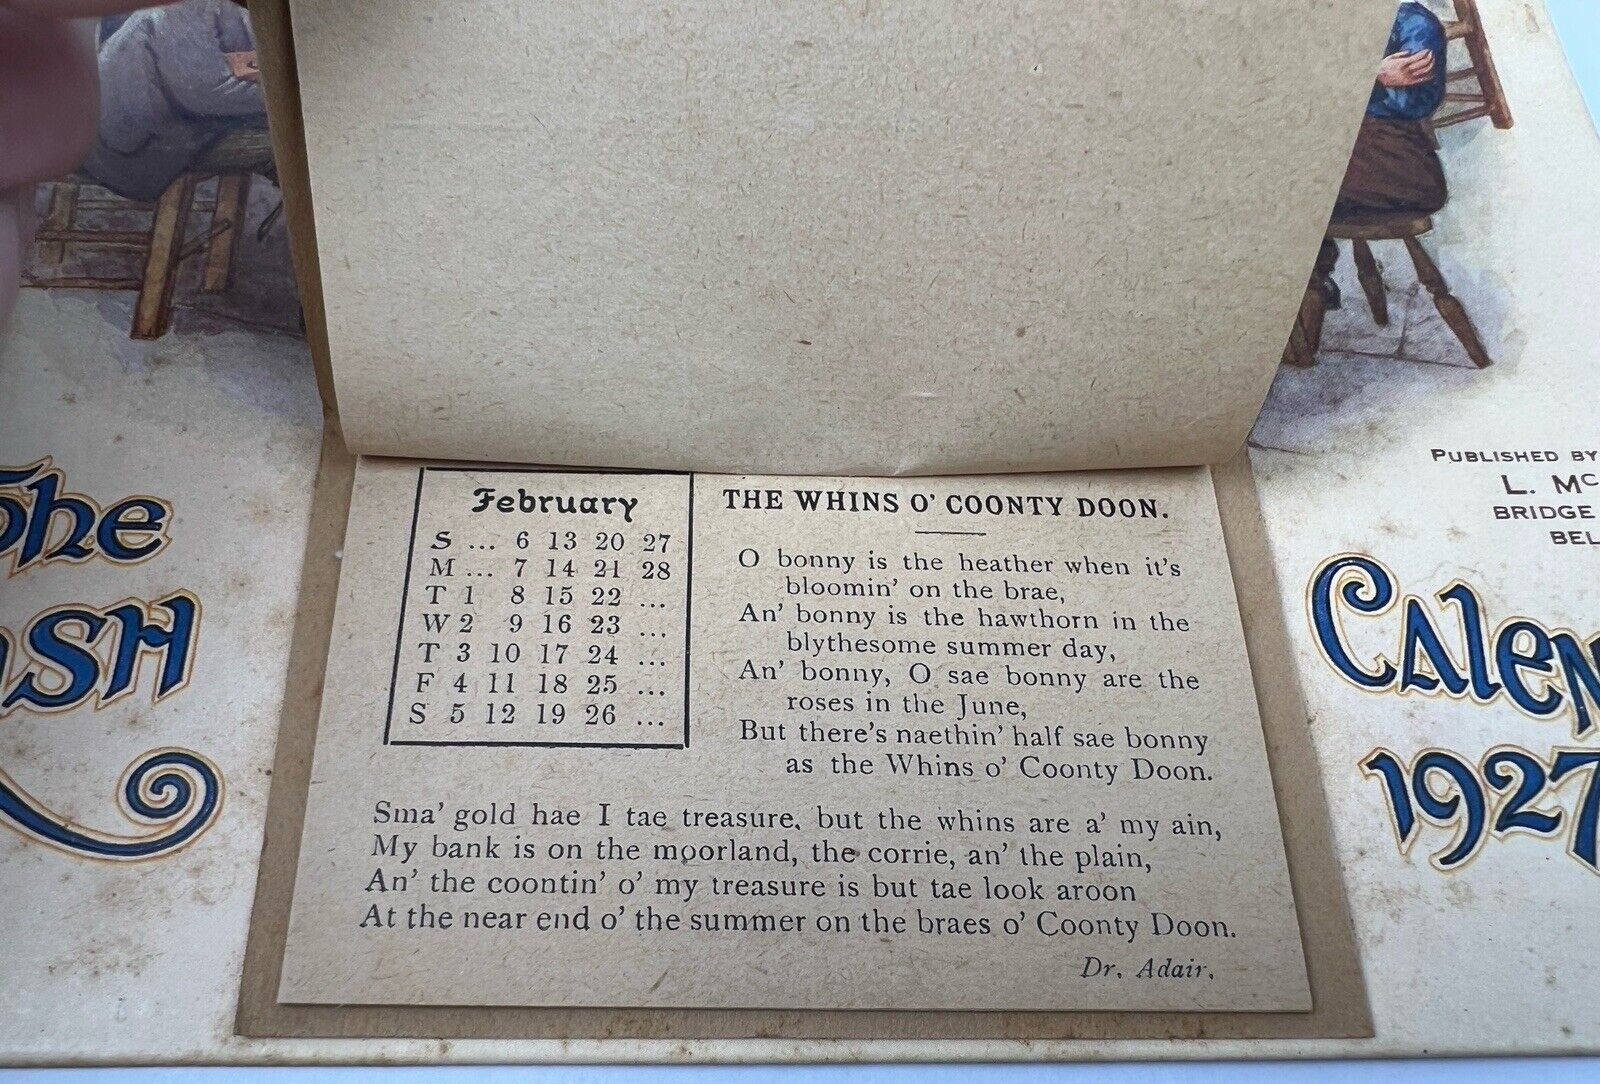 The
CALEN
1927
PUBLISHED BY
L. Mc
BRIDGE
BEL
February
S ... 6 13 20 27
M ... 7 14 21 28
T 1 8 15 22 ...
W 2 9 16 23 ...
T 3 10 17 24 ...
F 4 11 18 25 ...
S 5 12 19 26 ...
THE WHINS O' COONTY DOON.
O bonny is the heather when it's
bloomin' on the brae,
An' bonny is the hawthorn in the
blythesome summer day,
An' bonny, O sae bonny are the
roses in the June,
But there's naethin' half sae bonny
as the Whins o' Coonty Doon.
Sma' gold hae I tae treasure, but the whins are a' my ain,
My bank is on the moorland, the corrie, an' the plain,
An' the coontin' o' my treasure is but tae look aroon
At the near end o' the summer on the braes o' Coonty Doon.
Dr. Adair.